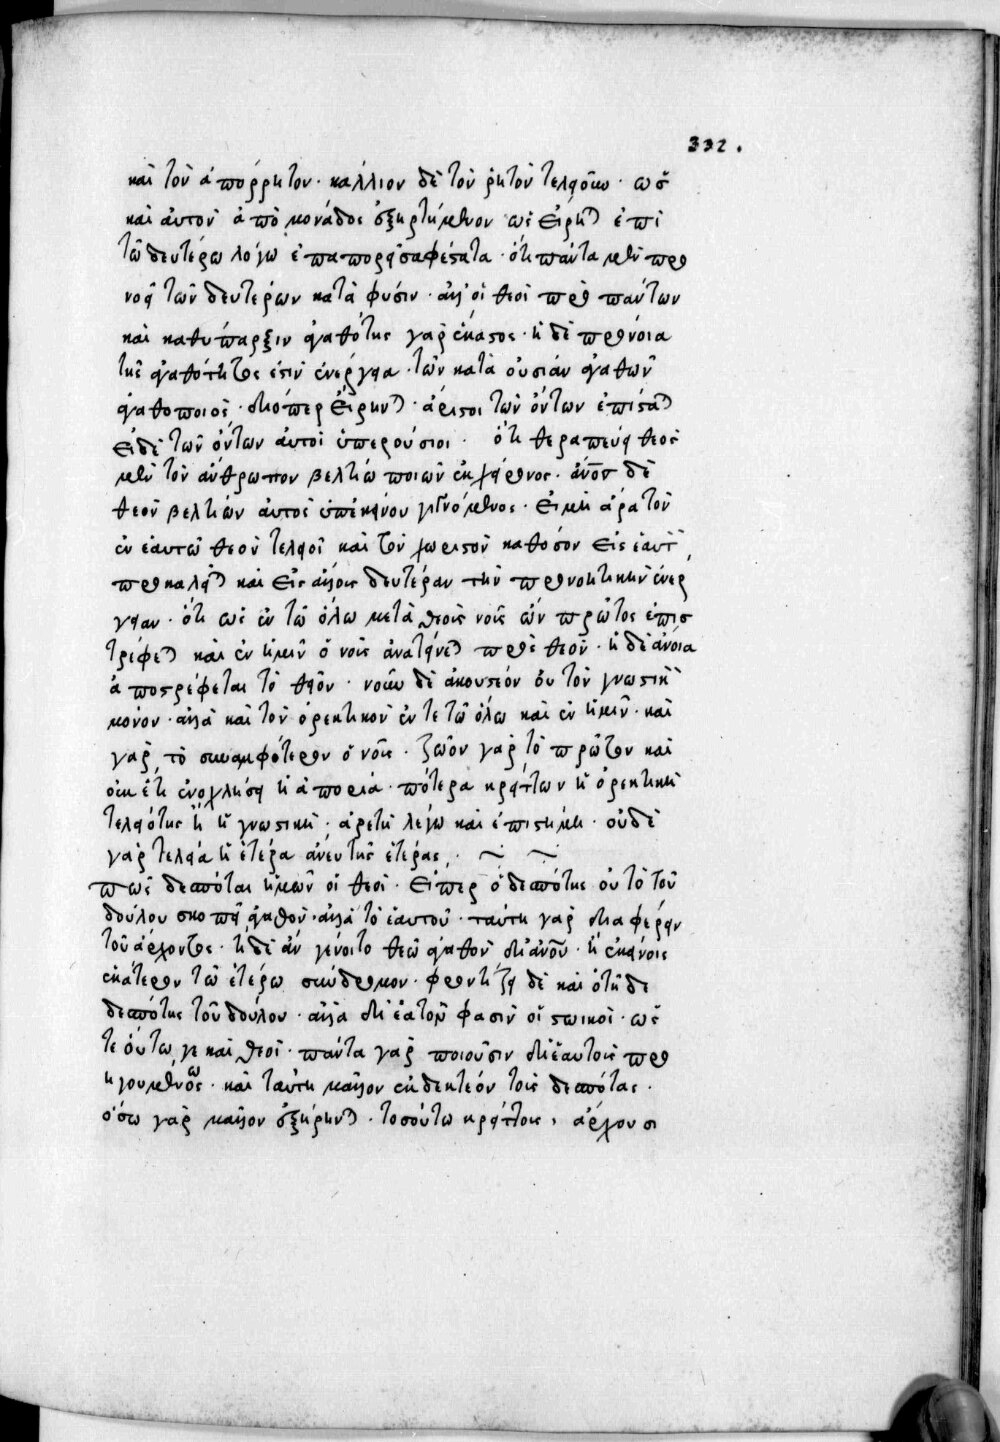 332.
καὶ τὸν ἀπόρρητον· κάλλιον δὲ τὸν ῥητὸν τελειοῦν· ὡς
καὶ αὐτὸν ἀπὸ μονάδος ἐξηρτημένον ὡς εἴρηται ἐπὶ
τῶ δευτέρω λόγω ἐπαπορεῖ σαφέστατα· ὅτι πάντα μὲν προ
νοεῖ τῶν δευτέρων κατὰ φύσιν· ἀλλ' οἱ θεοὶ πρὸ πάντων
καὶ καθ' ὕπαρξιν ἀγαθότης γὰρ ἕκαστος· ἡ δὲ πρόνοια
τῆς ἀγαθότητος ἐστὶν ἐνέργεια· τῶν κατὰ οὐσίαν ἀγαθῶν
ἀγαθοποιός· διόπερ εἴρηνται· ἄριστοι τῶν ὄντων ἐπίσταται
εἰ δὲ τῶν ὄντων αὐτοὶ ὑπερούσιοι· ὅτι θεραπεύει θεὸς
μὲν τὸν ἄνθρωπον βελτίω ποιῶν ἐκ χείρονος· ἄνος δὲ
θεὸν βελτίων αὐτὸς ὑπ' ἐκείνου γινόμενος· εἰ μὴ ἄρα τὸν
ἐν ἑαυτῶ θεὸν τελειοῖ καὶ τὸν χωριστὸν καθόσον εἰς ἑαυτὸν
προκαλεῖται καὶ εἰς ἄλλους δευτέραν τὴν προνοητικὴν ἐνέρ
γειαν· ὅτι ὡς ἐν τῶ ὅλω μετὰ θεοὺς νοῦς ὢν πρῶτος ἐπισ
τρέφεται καὶ ἐν ἡμῖν ὁ νοῦς ἀνατείνεται πρὸς θεόν· ἡ δὲ ἄνοια
ἀποστρέφεται τὸ θεῖον· νοῦν δὲ ἀκουστέον οὐ τὸν γνωστικὸν
μόνον· ἀλλὰ καὶ τὸν ὀρεκτικὸν ἔν τε τῶ ὅλω καὶ ἐν ἡμῖν· καὶ
γὰρ τὸ συναμφότερον ὁ νοῦς· ζῶον γὰρ τὸ πρῶτον καὶ
οὐκ ἔτι ἐνοχλήσει ἡ ἀπορία· πότερα κρείττων ἡ ὀρεκτικὴ
τελειότης ἢ ἡ γνωστική· ἀρετὴ λέγω καὶ ἐπιστήμη· οὐδὲ
γὰρ τελεία ἡ ἑτέρα ἄνευ τῆς ἑτέρας·
πῶς δεσπόται ἡμῶν οἱ θεοί· εἴπερ ὁ δεσπότης οὐ τὸ τοῦ
δούλου σκοπεῖ ἀγαθόν· ἀλλὰ τὸ ἑαυτοῦ· ταύτη γὰρ διαφέρειν
τοῦ ἄρχοντος· τί δὲ ἂν γένοιτο θεῶ ἀγαθὸν δι' ἄνου· ἢ ἐκείνοις
ἑκάτερον τῶ ἑτέρω σύνδρομον· φροντίζει δὲ καὶ ὅτι δε
δεσπότης τοῦ δούλου· ἀλλὰ δι' ἑαυτὸν φασὶν οἱ στωικοί· ὥς
τε οὕτω γε καὶ θεοί· πάντα γὰρ ποιοῦσιν δι' ἑαυτοὺς προ
ηγουμένως· καὶ ταύτη μᾶλλον ἐκδεκτέον τοὺς δεσπότας·
ὅσω γὰρ μᾶλλον ἐξήρηνται· τοσούτω κρείττους, ἄρχουσι